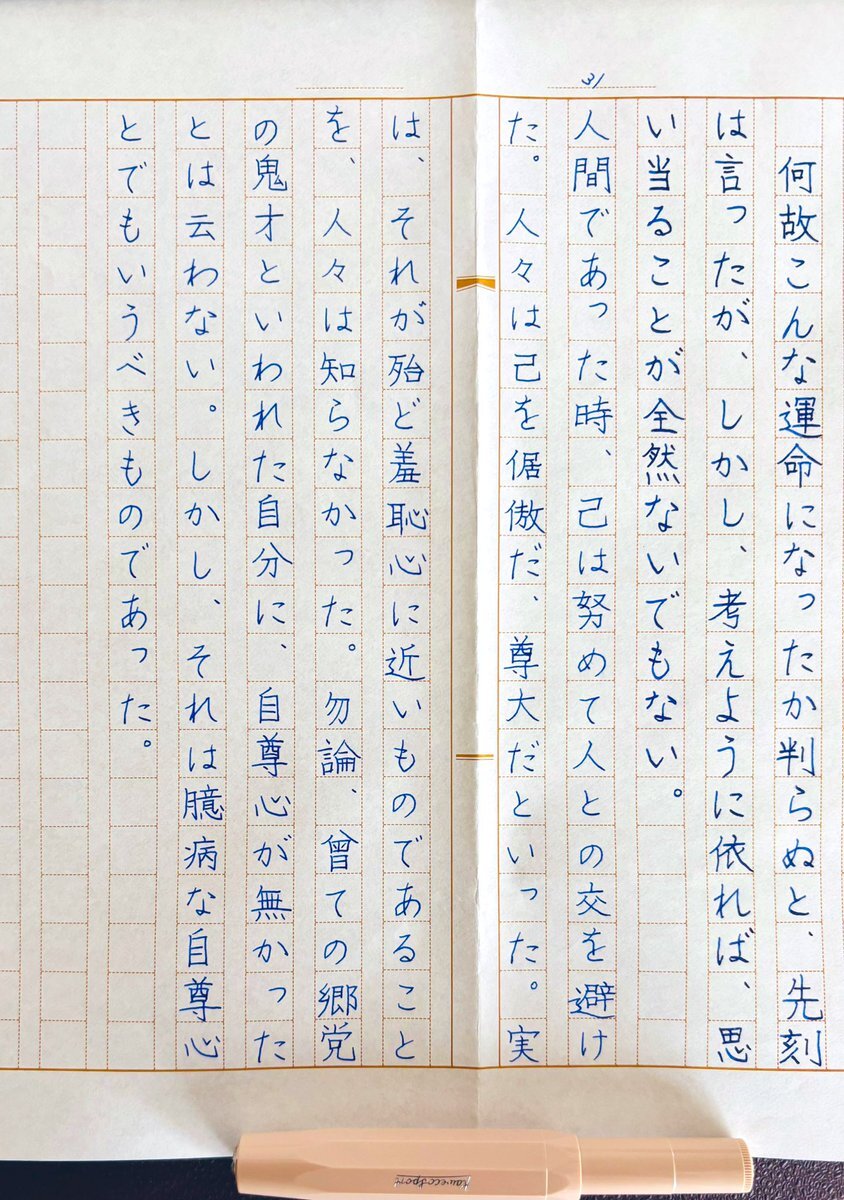 31
何故こんな運命になったか判らぬと、先刻
は言ったが、しかし、考えように依れば、思
い当ることが全然ないでもない。
人間であった時、己は努めて人との交を避け
た。人々は己を倨傲だ、尊大だといった。実
は、それが殆ど羞恥心に近いものであること
を、人々は知らなかった。勿論、曾ての郷党
の鬼才といわれた自分に、自尊心が無かった
とは云わない。しかし、それは臆病な自尊心
とでもいうべきものであった。
kaweco sport